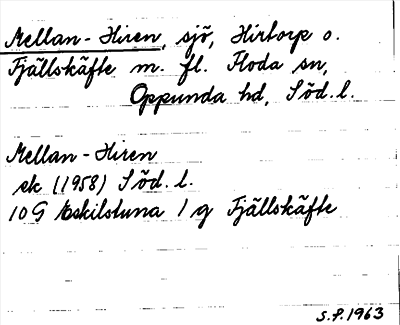 Mellan-Hiren, sjö, Hirtorp o.
Fjällskäfte m. fl. Floda sn,
Oppunda hd, Söd. l.
Mellan-Hiren
ek (1958) Söd. l.
10G Eskilstuna 1 g Fjällskäfte
S.P. 1963